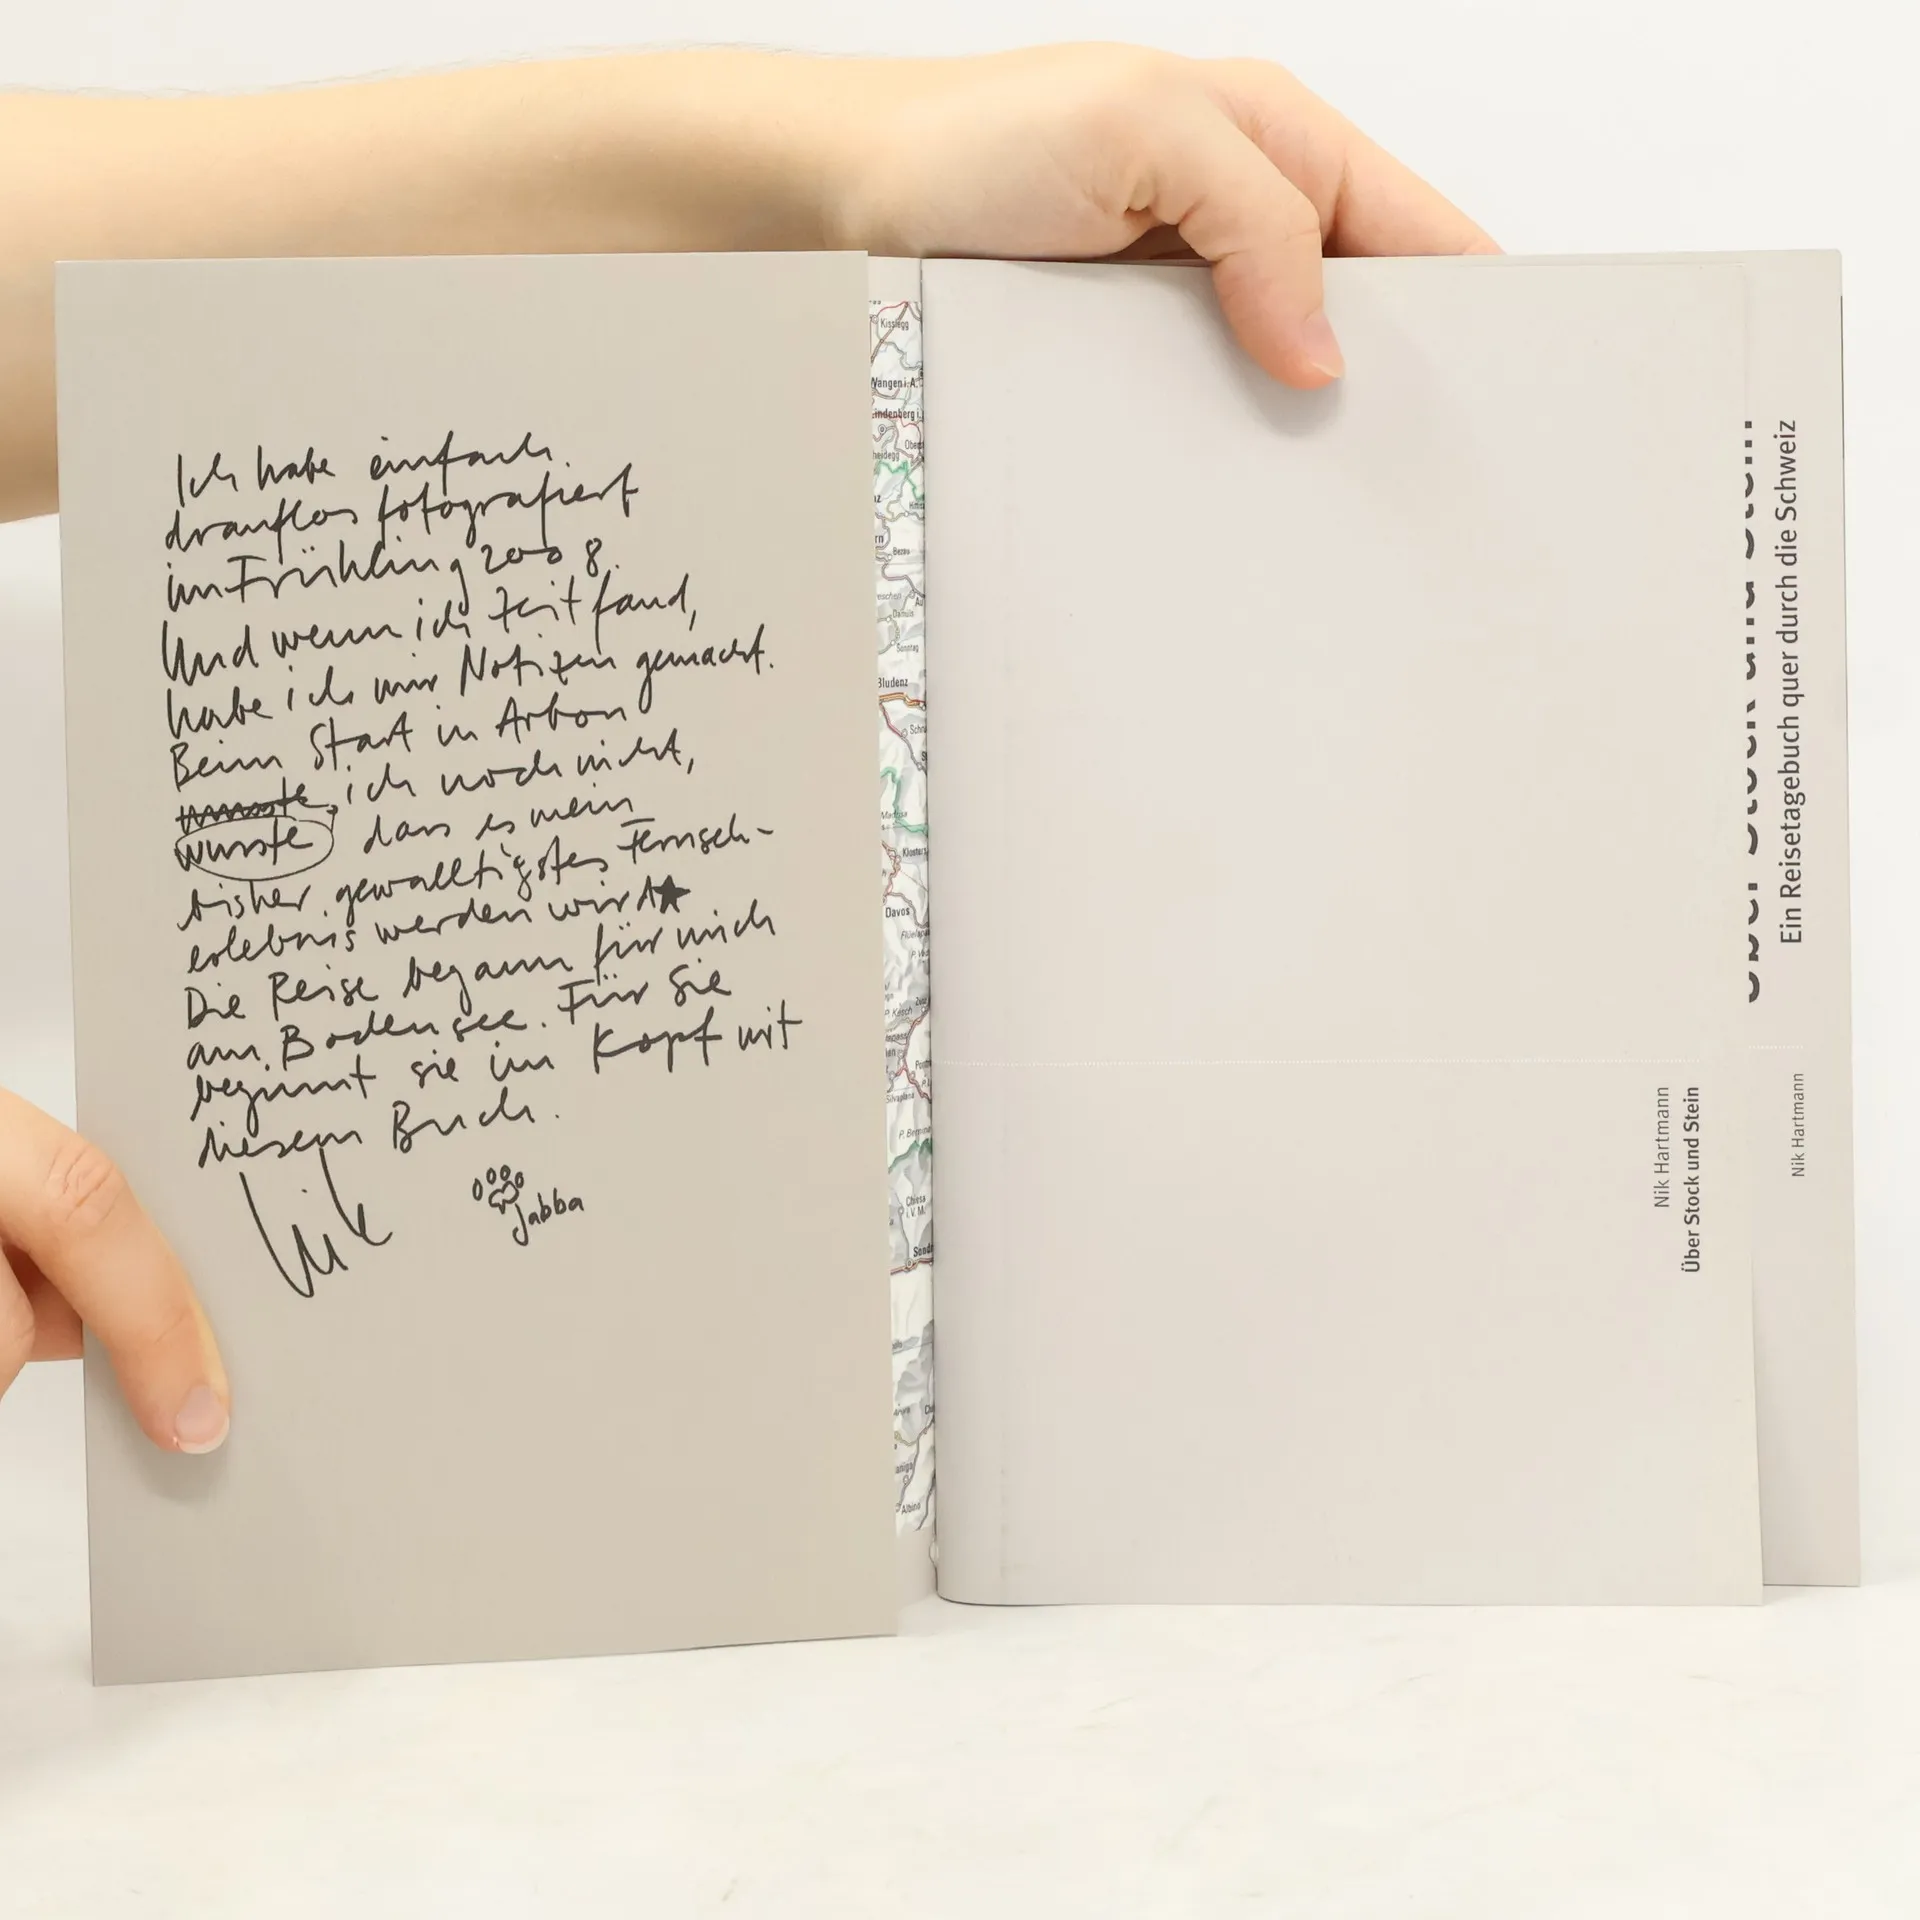 Ich habe einfach
drauflos fotografiert
im Frühling 2008.
Und wenn ich Zeit fand,
habe ich mir Notizen gemacht.
Beim Start in Arbon
wusste, ich noch nicht,
wusste dass es mein
bisher gewaltigstes Fernseh-
erlebnis werden wird★
Die Reise begann für mich
am Bodensee. Für Sie
beginnt sie im Kopf mit
diesem Buch.
Nik
Jabba
Kisslegg
Wangen i.A.
Bezau
Damüls
Sonntag
Bludenz
Klosters
Davos
P. Kesch
Silvaplana
Chiesa
i. V. M.
Albino
Nik Hartmann
Über Stock und Stein
Über Stock und Stein
Ein Reisetagebuch quer durch die Schweiz
Nik Hartmann